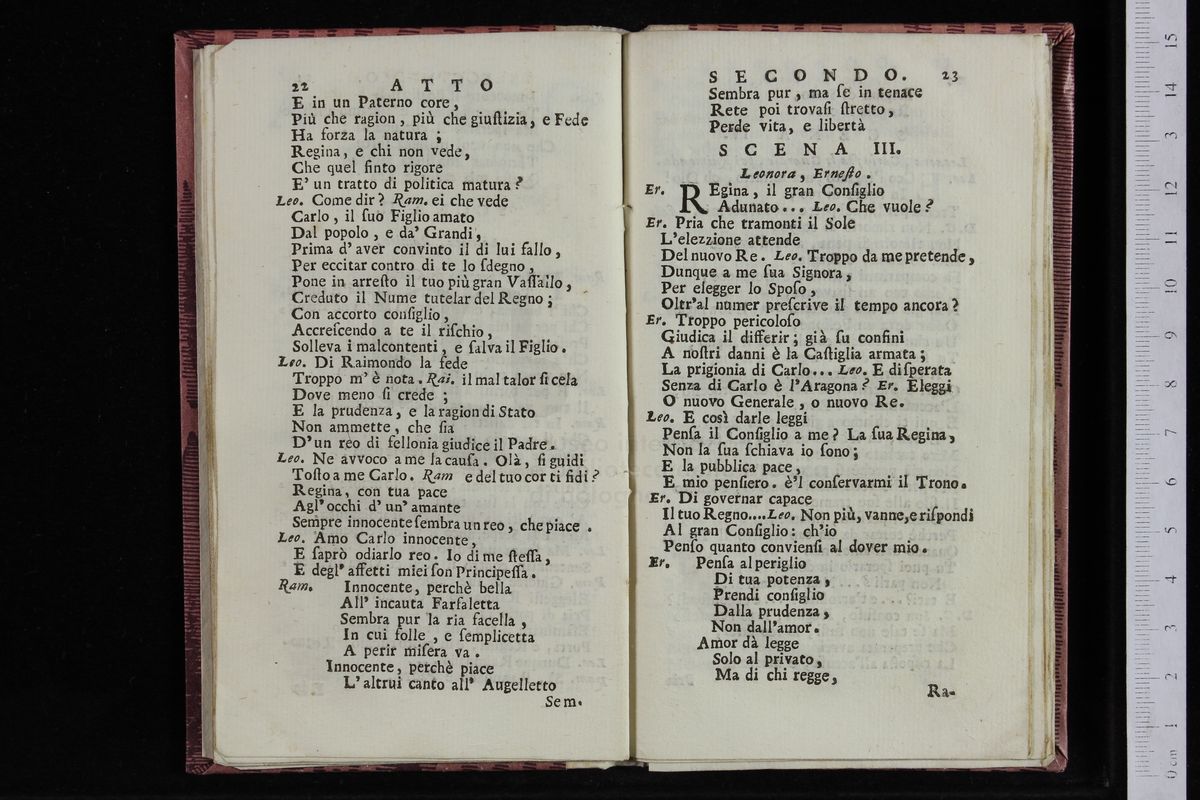 22 ATTO
E in un Paterno core,
Più che ragion, più che giuſtizia, e Fede
Ha forza la natura;
Regina, e chi non vede,
Che quel finto rigore
E' un tratto di politica matura?
Leo. Come dir? Ram. ei che vede
Carlo, il ſuo Figlio amato
Dal popolo, e da' Grandi,
Prima d' aver convinto il di lui fallo,
Per eccitar contro di te lo ſdegno,
Pone in arreſto il tuo più gran Vaſſallo,
Creduto il Nume tutelar del Regno;
Con accorto conſiglio,
Accreſcendo a te il riſchio,
Solleva i malcontenti, e ſalva il Figlio.
Leo. Di Raimondo la fede
Troppo m' è nota. Rai. il mal talor ſi cela
Dove meno ſi crede;
E la prudenza, e la ragion di Stato
Non ammette, che ſia
D'un reo di fellonia giudice il Padre.
Leo. Ne avvoco a me la cauſa. Olà, ſi guidi
Toſto a me Carlo. Ram e del tuo cor ti fidi?
Regina, con tua pace
Agl' occhi d' un' amante
Sempre innocente ſembra un reo, che piace.
Leo. Amo Carlo innocente,
E ſaprò odiarlo reo. Io di me ſteſſa,
E degl' affetti miei ſon Principeſſa.
Ram. Innocente, perchè bella
All' incauta Farfaletta
Sembra pur la ria facella,
In cui folle, e ſemplicetta
A perir miſera va.
Innocente, perchè piace
L' altrui canto all' Augelletto
Sem.
SECONDO. 23
Sembra pur, ma ſe in tenace
Rete poi trovaſi ſtretto,
Perde vita, e libertà
SCENA III.
Leonora, Erneſto.
Er. REgina, il gran Conſiglio
Adunato... Leo. Che vuole?
Er. Pria che tramonti il Sole
L'elezzione attende
Del nuovo Re. Leo. Troppo da me pretende,
Dunque a me ſua Signora,
Per elegger lo Spoſo,
Oltr'al numer preſcrive il tempo ancora?
Er. Troppo pericoloſo
Giudica il differir; già ſu confini
A noſtri danni è la Caſtiglia armata;
La prigionia di Carlo... Leo. E diſperata
Senza di Carlo è l'Aragona? Er. Eleggi
O nuovo Generale, o nuovo Re.
Leo. E così darle leggi
Penſa il Conſiglio a me? La ſua Regina,
Non la ſua ſchiava io ſono;
E la pubblica pace,
E mio penſiero. è'l conſervarmi il Trono.
Er. Di governar capace
Il tuo Regno....Leo. Non più, vanne, e riſpondi
Al gran Conſiglio: ch'io
Penſo quanto convienſi al dover mio.
Er. Penſa al periglio
Di tua potenza,
Prendi conſiglio
Dalla prudenza,
Non dall'amor.
Amor dà legge
Solo al privato,
Ma di chi regge,
Ra-